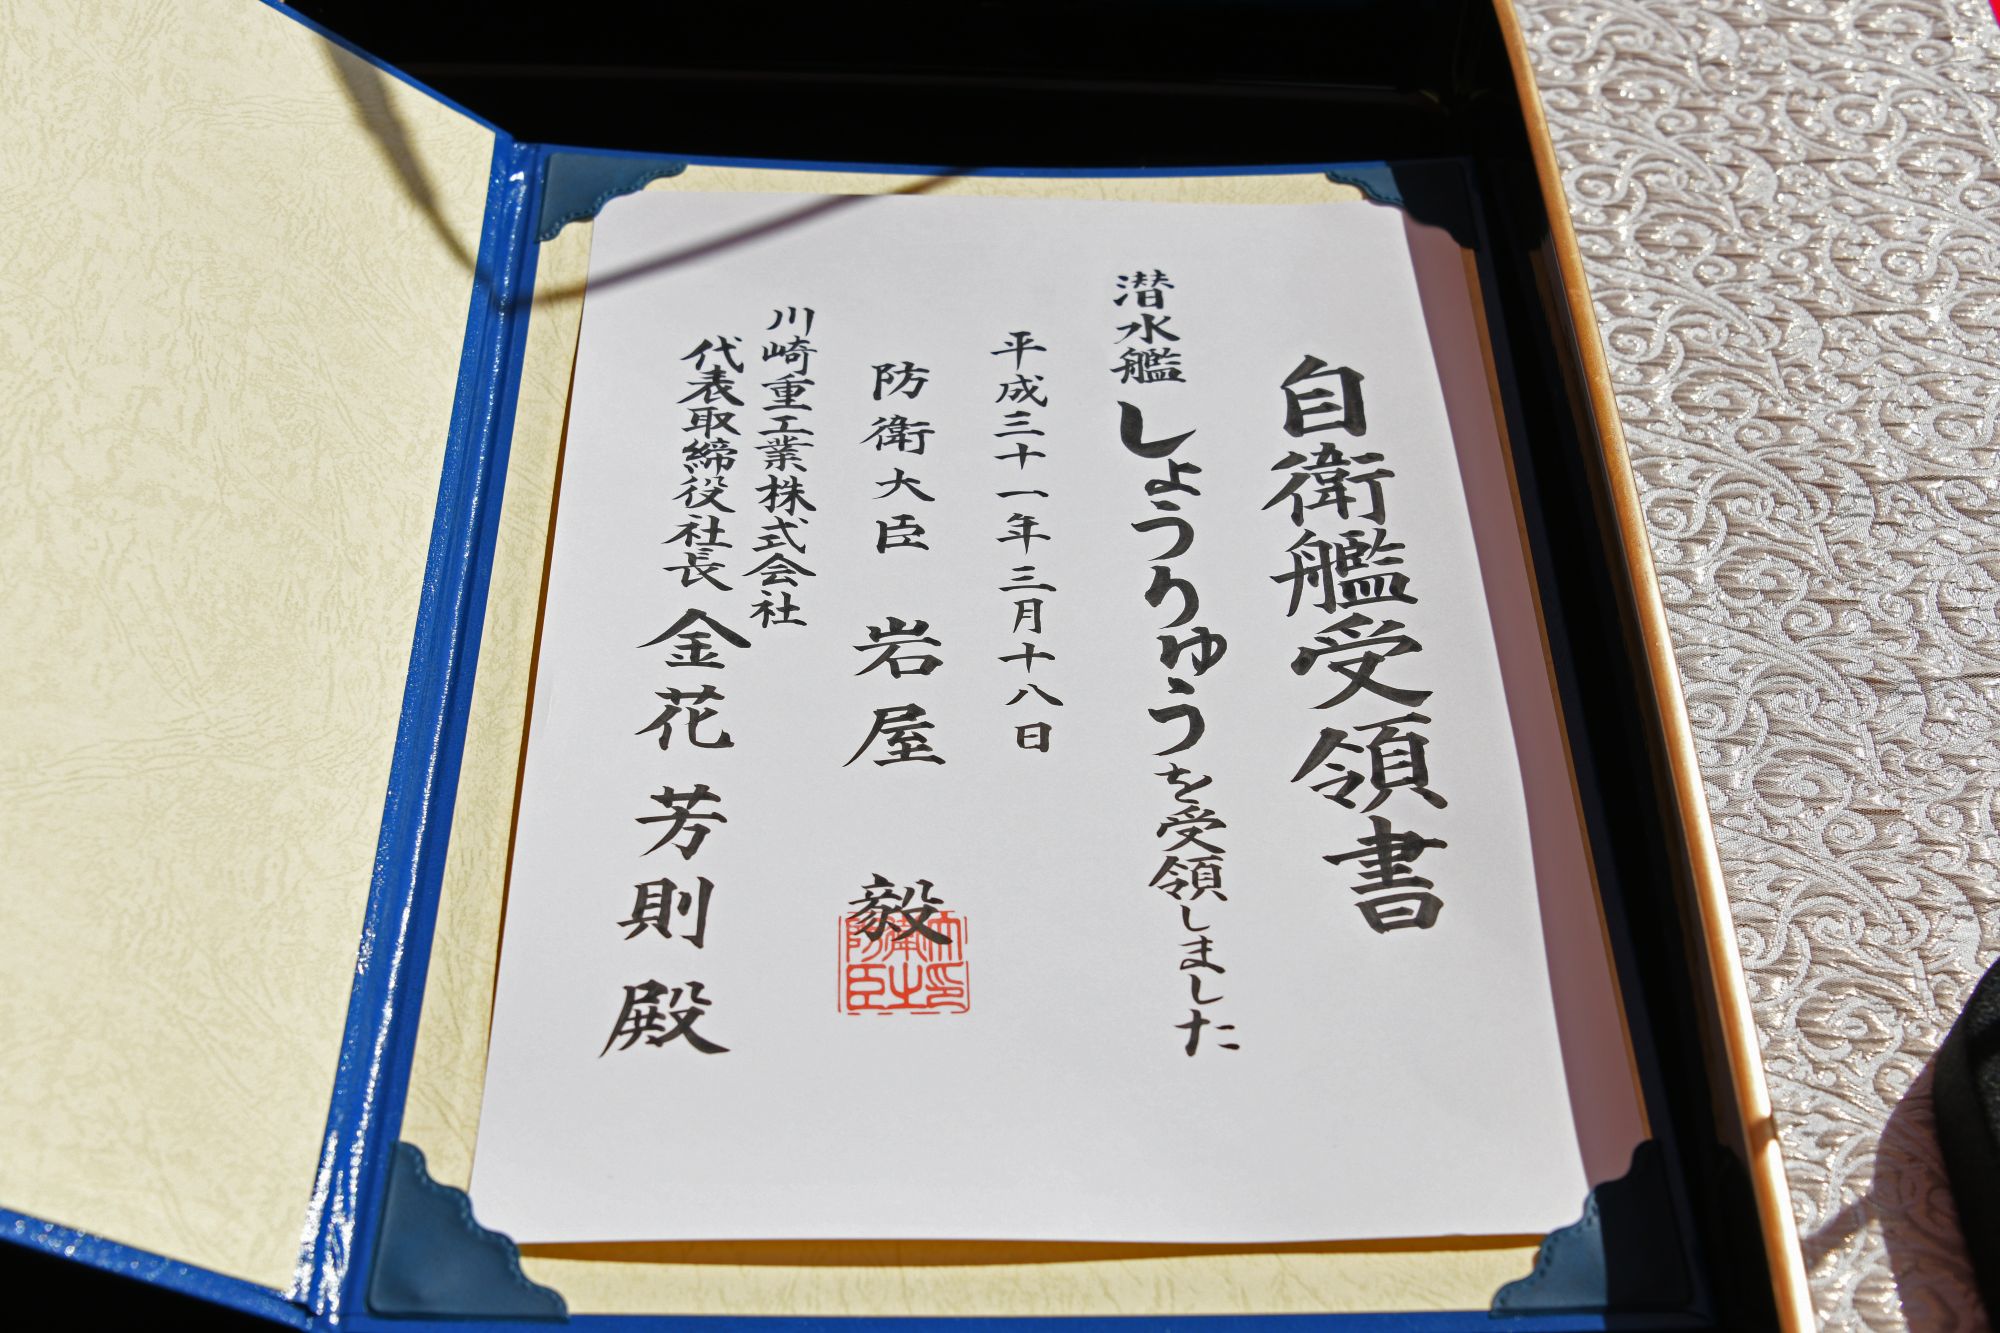 自衛艦受領書
潜水艦しょうりゅうを受領しました
平成三十一年三月十八日
防衛大臣 岩屋 毅
防衛大臣之印
川崎重工業株式会社
代表取締役社長 金花芳則殿